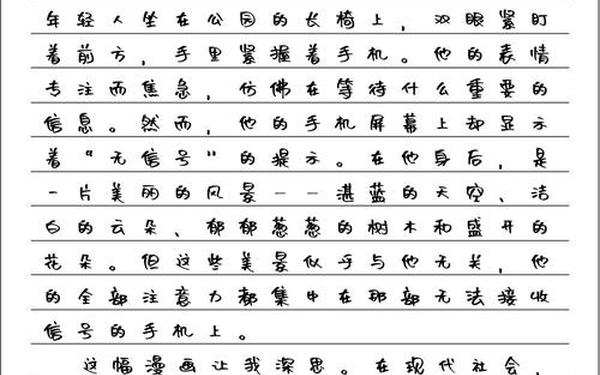 年轻人坐在公园的长椅上，双眼紧盯
着前方，手里紧握着手机。他的表情
专注而焦急，仿佛在等待什么重要的
信息。然而，他的手机屏幕上却显示
着“无信号”的提示。在他身后，是
一片美丽的风景——湛蓝的天空、洁
白的云朵、郁郁葱葱的树木和盛开的
花朵。但这些美景似乎与他无关，他
的全部注意力都集中在那部无法接收
信号的手机上。
这幅漫画让我深思。在现代社会，